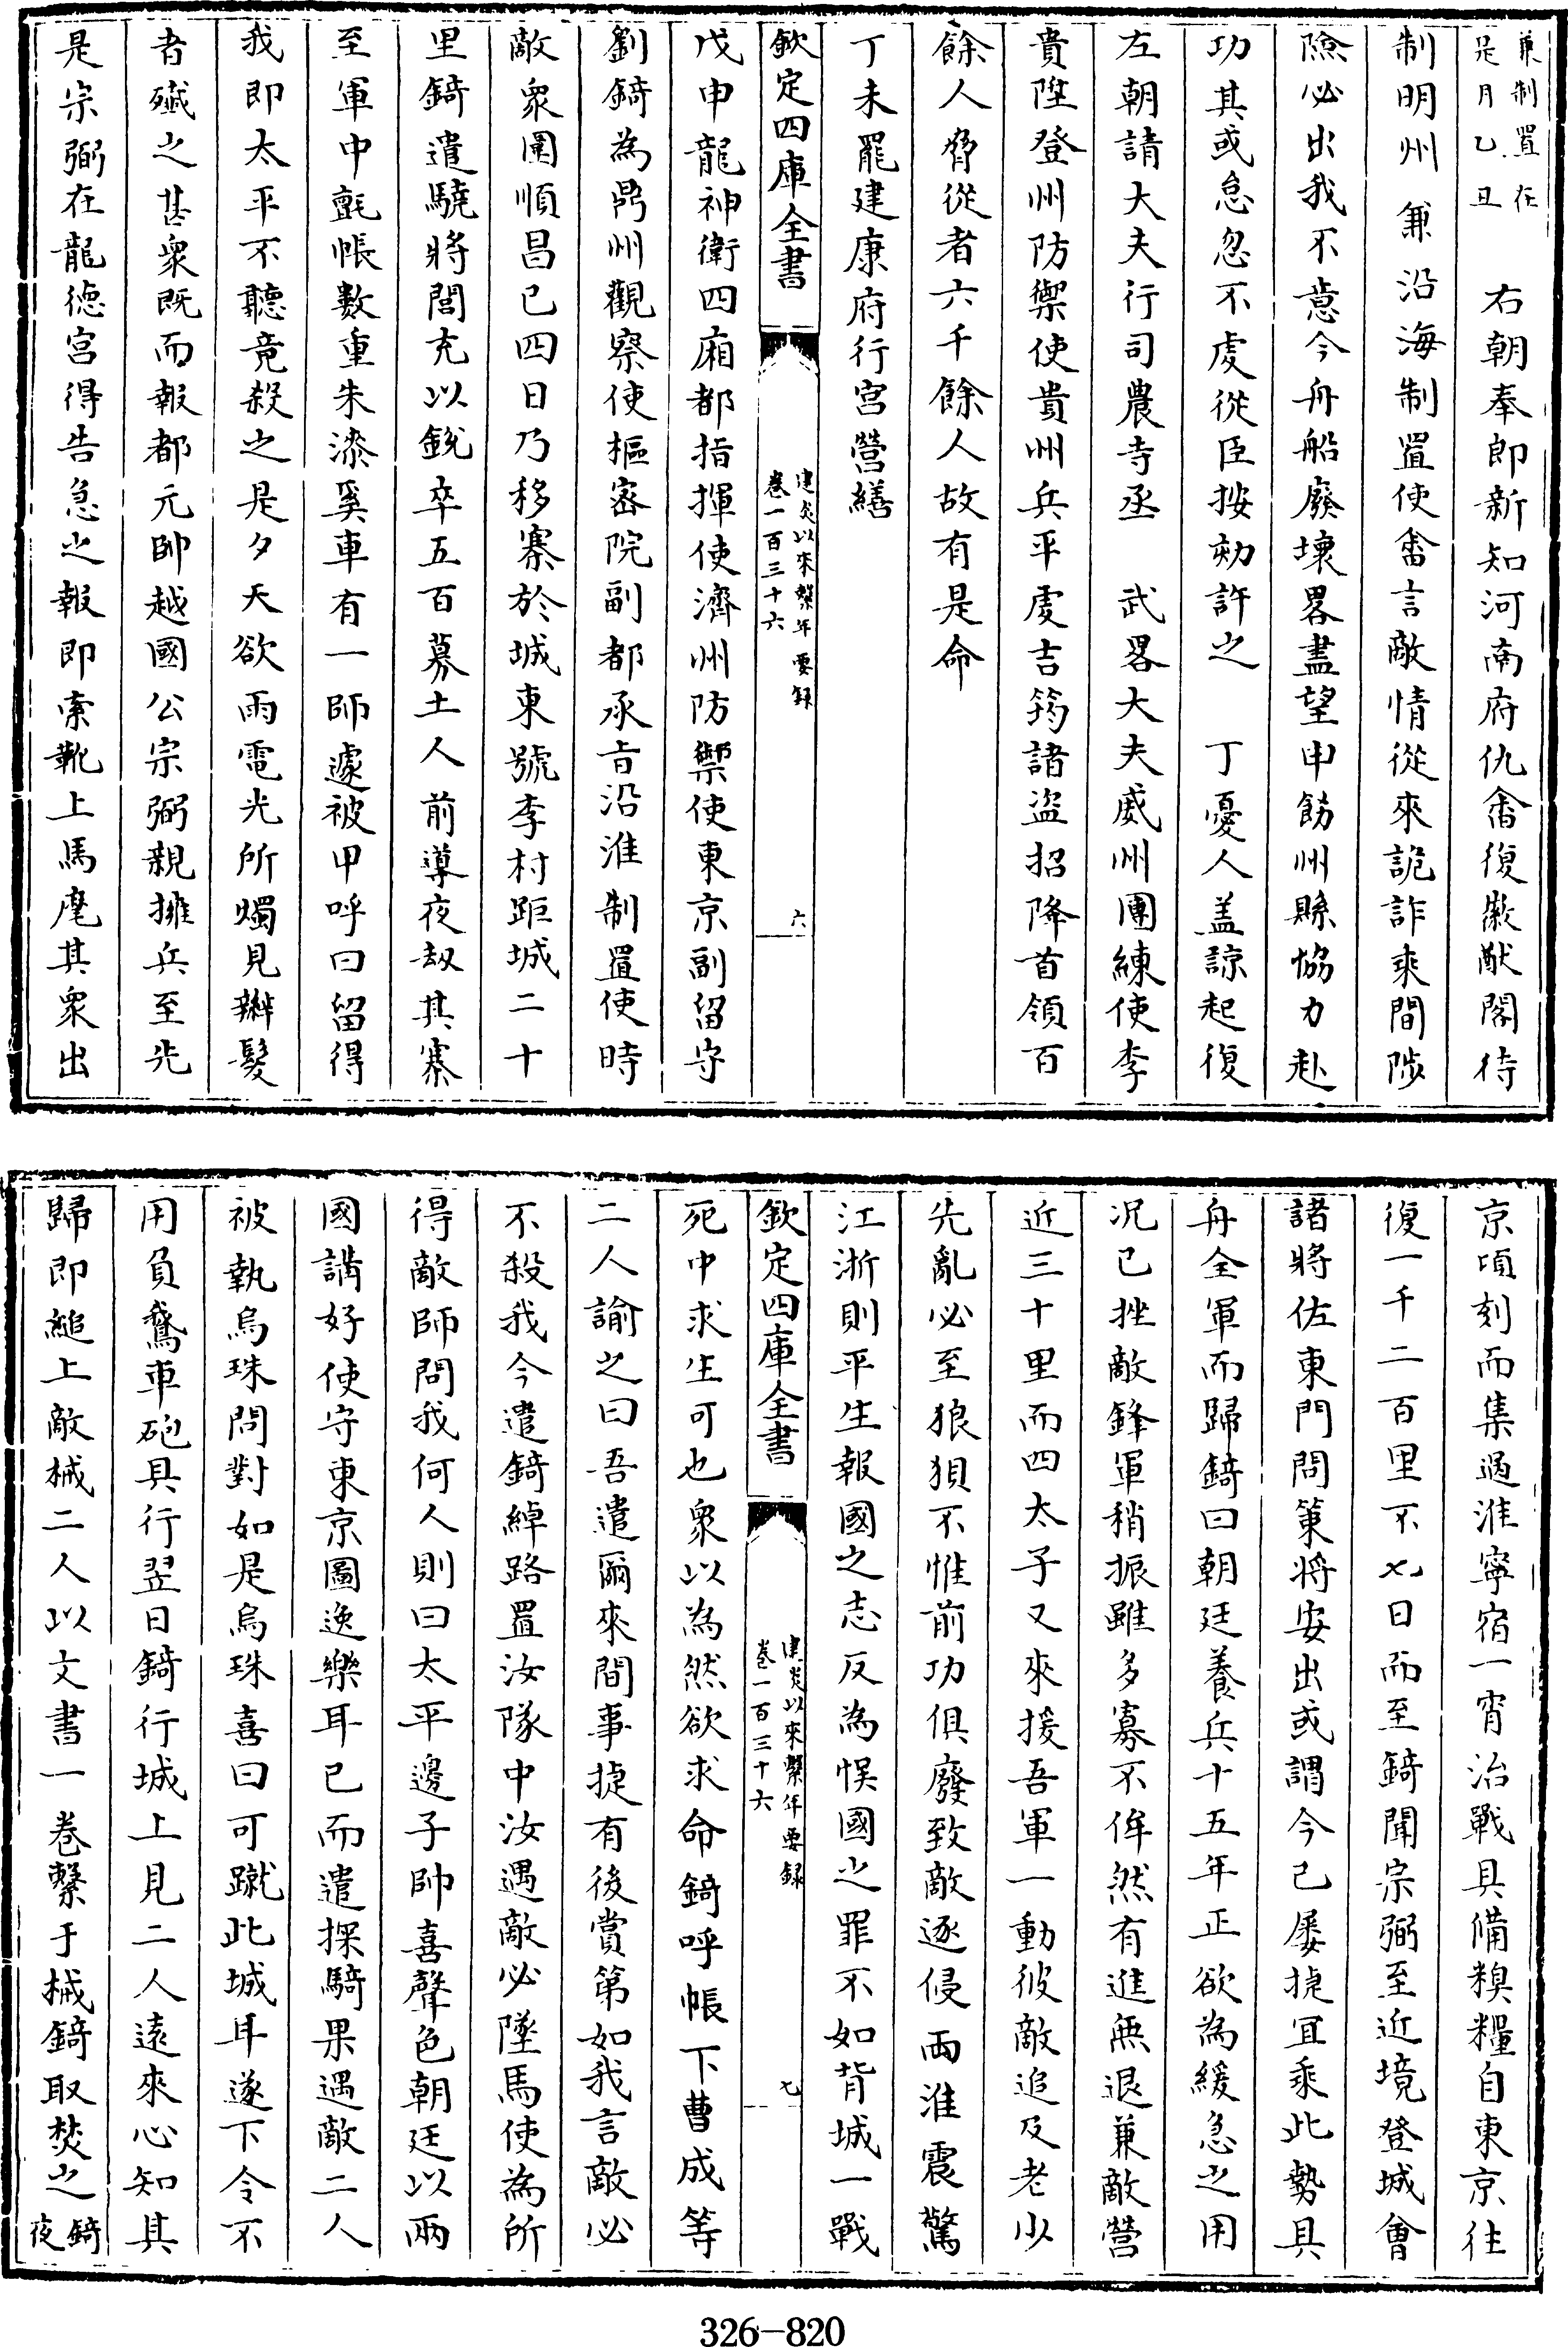 兼制置在是月乙丑　右朝奉郎新知河南府仇悆復徽猷閣待
制明州兼沿海制置使悆言敵情從來詭詐乘間陟
險必出我不意今舟船廢壞畧盡望申飭州縣協力赴
功其或怠忽不虔從臣按劾許之　丁憂人蓋諒起復
左朝請大夫行司農寺丞　武畧大夫威州團練使李
貴陞登州防禦使貴州兵平虔吉筠諸盜招降首領百
餘人脅從者六千餘人故有是命
丁未罷建康府行宮營繕
欽定四庫全書
建炎以來繫年要録
卷一百三十六
六
戊申龍神衛四廂都指揮使濟州防禦使東京副留守
劉錡為鼎州觀察使樞密院副都承旨沿淮制置使時
敵衆圍順昌已四日乃移寨於城東號李村距城二十
里錡遣驍將閻充以銳卒五百募土人前導夜刼其寨
至軍中氈帳數重朱漆奚車有一帥遽被甲呼曰留得
我即太平不聽竟殺之是夕天欲雨電光所燭見辮髮
者殲之甚衆既而報都元帥越國公宗弼親擁兵至先
是宗弼在龍德宮得告急之報即索靴上馬麾其衆出
京頃刻而集過淮寧宿一宵治戰具備糗糧自東京往
復一千二百里不七日而至錡聞宗弼至近境登城會
諸將佐東門問策將安出或謂今已屢捷宜乘此勢具
舟全軍而歸錡曰朝廷養兵十五年正欲為緩急之用
況已挫敵鋒軍稍振雖多寡不侔然有進無退兼敵營
近三十里而四太子又來援吾軍一動彼敵追及老少
先亂必至狼狽不惟前功俱廢致敵逐侵兩淮震驚
江浙則平生報國之志反為悞國之罪不如背城一戰
欽定四庫全書
建炎以來繫年要録
卷一百三十六
七
死中求生可也衆以為然欲求命錡呼帳下曹成等
二人諭之曰吾遣爾來間事捷有後賞第如我言敵必
不殺我今遣錡綽路置汝隊中汝遇敵必墜馬使為所
得敵帥問我何人則曰太平邊子帥喜聲色朝廷以兩
國講好使守東京圖逸樂耳已而遣探騎果遇敵二人
被執烏珠問對如是烏珠喜曰可蹴此城耳遂下令不
用負鵞車砲具行翌日錡行城上見二人遠來心知其
歸即縋上敵械二人以文書一卷繫于械錡取焚之錡夜
326-820